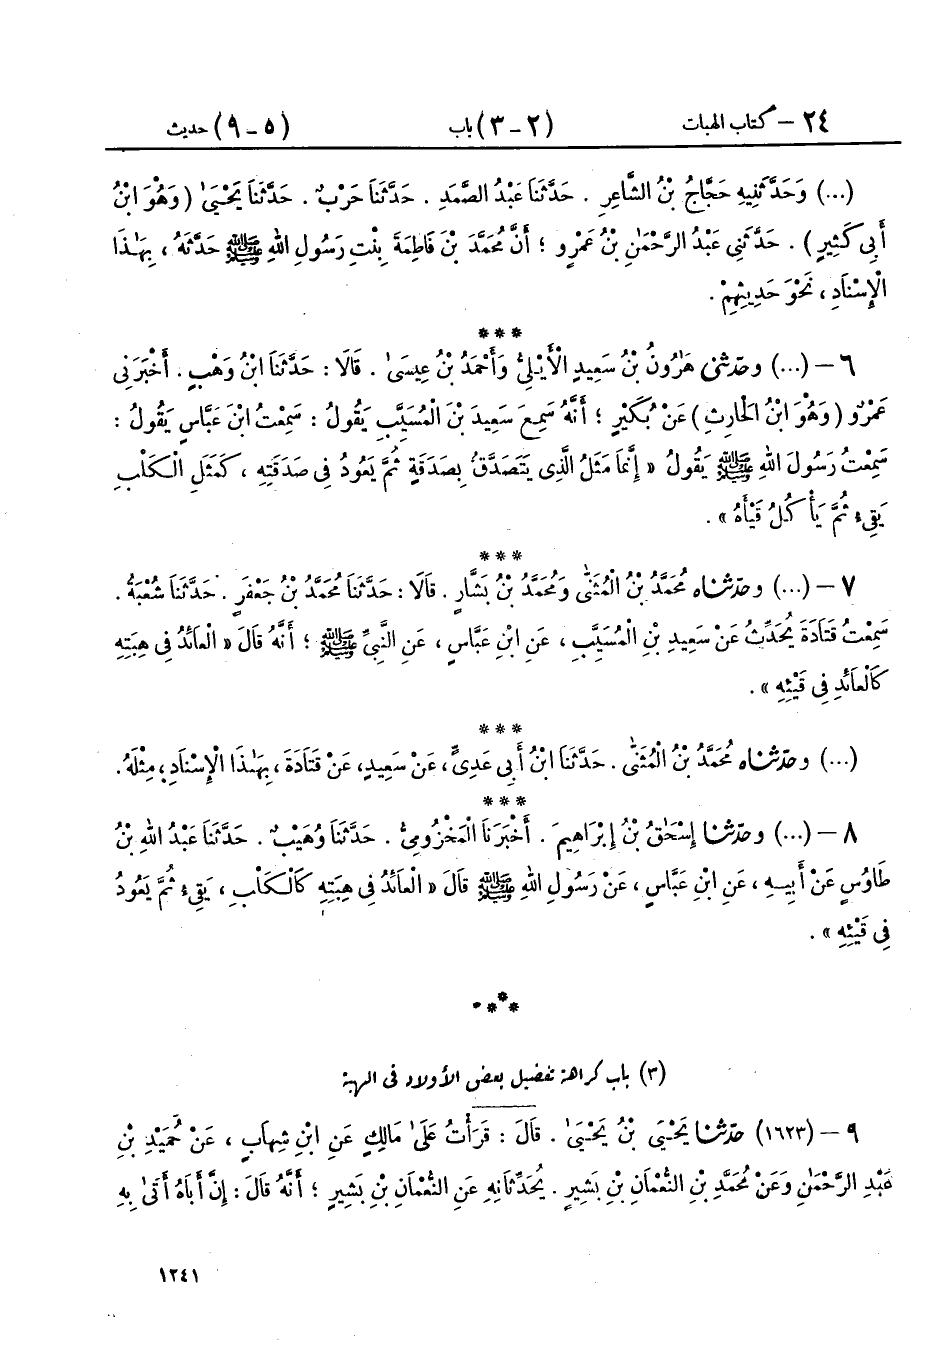 ٢٤ – كتاب الهبات (٢ – ٣) باب (٥ – ٩) حديث
(...) وَحَدَّثَنِيهِ حَجَّاجُ بْنُ الشَّاعِرِ . حَدَّثَنَا عَبْدُ الصَّمَدِ . حَدَّثَنَا حَرْبٌ . حَدَّثَنَا يَحْيَىٰ (وَهُوَ ابْنُ
أَبِي كَثِيرٍ) . حَدَّثَنِي عَبْدُ الرَّحْمَٰنِ بْنُ عَمْرٍو ؛ أَنَّ مُحَمَّدَ بْنَ فَاطِمَةَ بِنْتِ رَسُولِ اللهِ ﷺ حَدَّثَهُ ، بِهَٰذَا
الْإِسْنَادِ ، نَحْوَ حَدِيثِهِمْ .
***
٦ – (...) وحدّثنى هَٰرُونُ بْنُ سَعِيدٍ الْأَيْلِيُّ وَأَحْمَدُ بْنُ عِيسَىٰ . قَالَا : حَدَّثَنَا ابْنُ وَهْبٍ . أَخْبَرَنِى
عَمْرٌو (وَهُوَ ابْنُ الْحَارِثِ) عَنْ بُكَيْرٍ ؛ أَنَّهُ سَمِعَ سَعِيدَ بْنَ الْمُسَيَّبِ يَقُولُ : سَمِعْتُ ابْنَ عَبَّاسٍ يَقُولُ :
سَمِعْتُ رَسُولَ اللهِ ﷺ يَقُولُ « إِنَّمَا مَثَلُ الَّذِى يَتَصَدَّقُ بِصَدَقَةٍ ثُمَّ يَعُودُ فِى صَدَقَتِهِ ، كَمَثَلِ الْكَلْبِ
يَقِىءُ ثُمَّ يَأْكُلُ قَيْأَهُ » .
***
٧ – (...) وحدّثناه مُحَمَّدُ بْنُ الْمُثَنَّىٰ وَمُحَمَّدُ بْنُ بَشَّارٍ . قَالَا : حَدَّثَنَا مُحَمَّدُ بْنُ جَعْفَرٍ . حَدَّثَنَا شُعْبَةُ .
سَمِعْتُ قَتَادَةَ يُحَدِّثُ عَنْ سَعِيدِ بْنِ الْمُسَيَّبِ ، عَنِ ابْنِ عَبَّاسٍ ، عَنِ النَّبِيِّ ﷺ ؛ أَنَّهُ قَالَ « الْعَائِدُ فِى هِبَتِهِ
كَالْعَائِدِ فِى قَيْئِهِ » .
***
(...) وحدّثناه مُحَمَّدُ بْنُ الْمُثَنَّىٰ . حَدَّثَنَا ابْنُ أَبِى عَدِىٍّ ، عَنْ سَعِيدٍ ، عَنْ قَتَادَةَ ، بِهَٰذَا الْإِسْنَادِ ، مِثْلَهُ .
***
٨ – (...) وحدّثنا إِسْحَٰقُ بْنُ إِبْرَاهِيمَ . أَخْبَرَنَا الْمَخْزُومِىُّ . حَدَّثَنَا وُهَيْبٌ . حَدَّثَنَا عَبْدُ اللهِ بْنُ
طَاوُسٍ عَنْ أَبِيهِ ، عَنِ ابْنِ عَبَّاسٍ ، عَنْ رَسُولِ اللهِ ﷺ قَالَ « الْعَائِدُ فِى هِبَتِهِ كَالْكَلْبِ ، يَقِىءُ ثُمَّ يَعُودُ
فِى قَيْئِهِ » .
***
(٣) باب كراهة تفضيل بعض الأولاد فى الهبة
٩ – (١٦٢٣) حدّثنا يَحْيَى بْنُ يَحْيَىٰ . قَالَ : قَرَأْتُ عَلَىٰ مَالِكٍ عَنِ ابْنِ شِهَابٍ ، عَنْ حُمَيْدِ بْنِ
عَبْدِ الرَّحْمَٰنِ وَعَنْ مُحَمَّدِ بْنِ النُّعْمَانِ بْنِ بَشِيرٍ . يُحَدِّثَانِهِ عَنِ النُّعْمَانِ بْنِ بَشِيرٍ ؛ أَنَّهُ قَالَ : إِنَّ أَبَاهُ أَتَىٰ بِهِ
١٢٤١